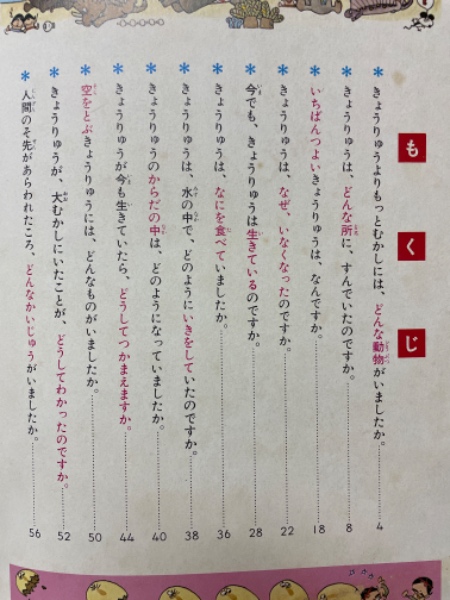 もくじ
* きょうりゅうよりもっとむかしには、どんな動物がいましたか。 4
* きょうりゅうは、どんな所に、すんでいたのですか。 8
* いちばんつよいきょうりゅうは、なんですか。 18
* きょうりゅうは、なぜ、いなくなったのですか。 22
* 今でも、きょうりゅうは生きているのですか。 28
* きょうりゅうは、なにを食べていましたか。 36
* きょうりゅうは、水の中で、どのようにいきをしていたのですか。 38
* きょうりゅうのからだの中は、どのようになっていましたか。 40
* きょうりゅうが今も生きていたら、どうしてつかまえますか。 44
* 空をとぶきょうりゅうには、どんなものがいましたか。 50
* きょうりゅうが、大むかしにいたことが、どうしてわかったのですか。 52
* 人間のそ先があらわれたころ、どんなかいじゅうがいましたか。 56